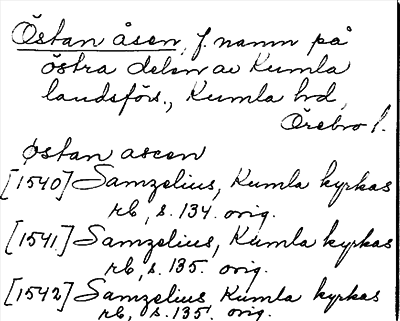 Östan åsen, f. namn på
östra delen av Kumla
landsförs., Kumla hd,
Örebro l.
østan ascen
[1540] Samzelius, Kumla kyrkas
rb, s. 134. orig.
[1541] Samzelius, Kumla kyrkas
rb, s. 135. orig.
[1542] Samzelius, Kumla kyrkas
rb, s. 135. orig.